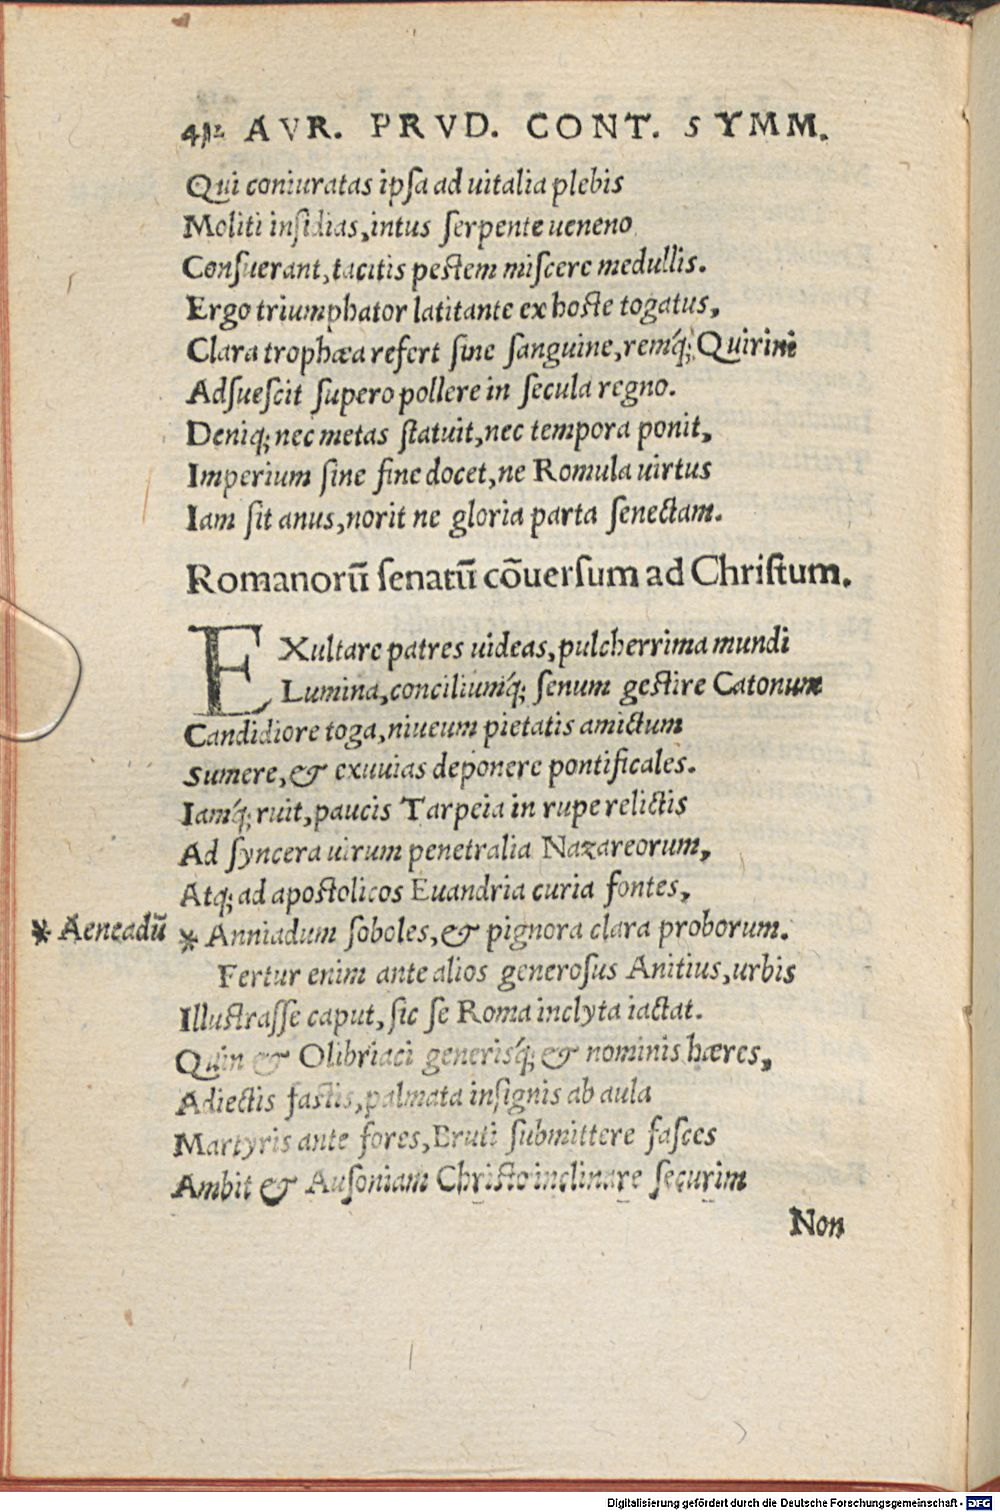 412 AVR. PRVD. CONT. SYMM.
Qui coniuratas ipsa ad uitalia plebis
Moliti insidias, intus serpente ueneno
Consuerant, tacitis pestem miscere medullis.
Ergo triumphator latitante ex hoste togatus,
Clara trophæa refert sine sanguine, remq́; Quirini
Adsuescit supero pollere in secula regno.
Deniq; nec metas statuit, nec tempora ponit,
Imperium sine fine docet, ne Romula uirtus
Iam sit anus, norit ne gloria parta senectam.
Romanorū senatū cōuersum ad Christum.
EXultare patres uideas, pulcherrima mundi
Lumina, conciliumq́; senum gestire Catonum
Candidiore toga, niueum pietatis amictum
Sumere, & exuuias deponere pontificales.
Iamq́; ruit, paucis Tarpeia in rupe relictis
Ad syncera uirum penetralia Nazareorum,
Atq; ad apostolicos Euandria curia fontes,
* Aeneadū * Anniadum soboles, & pignora clara proborum.
Fertur enim ante alios generosus Anitius, urbis
Illustrasse caput, sic se Roma inclyta iactat.
Quin & Olibriaci generisq́; & nominis hæres,
Adiectis fastis, palmata insignis ab aula
Martyris ante fores, Bruti submittere fasces
Ambit & Ausoniam Christo inclinare securim
Non
Digitalisierung gefördert durch die Deutsche Forschungsgemeinschaft - DFG